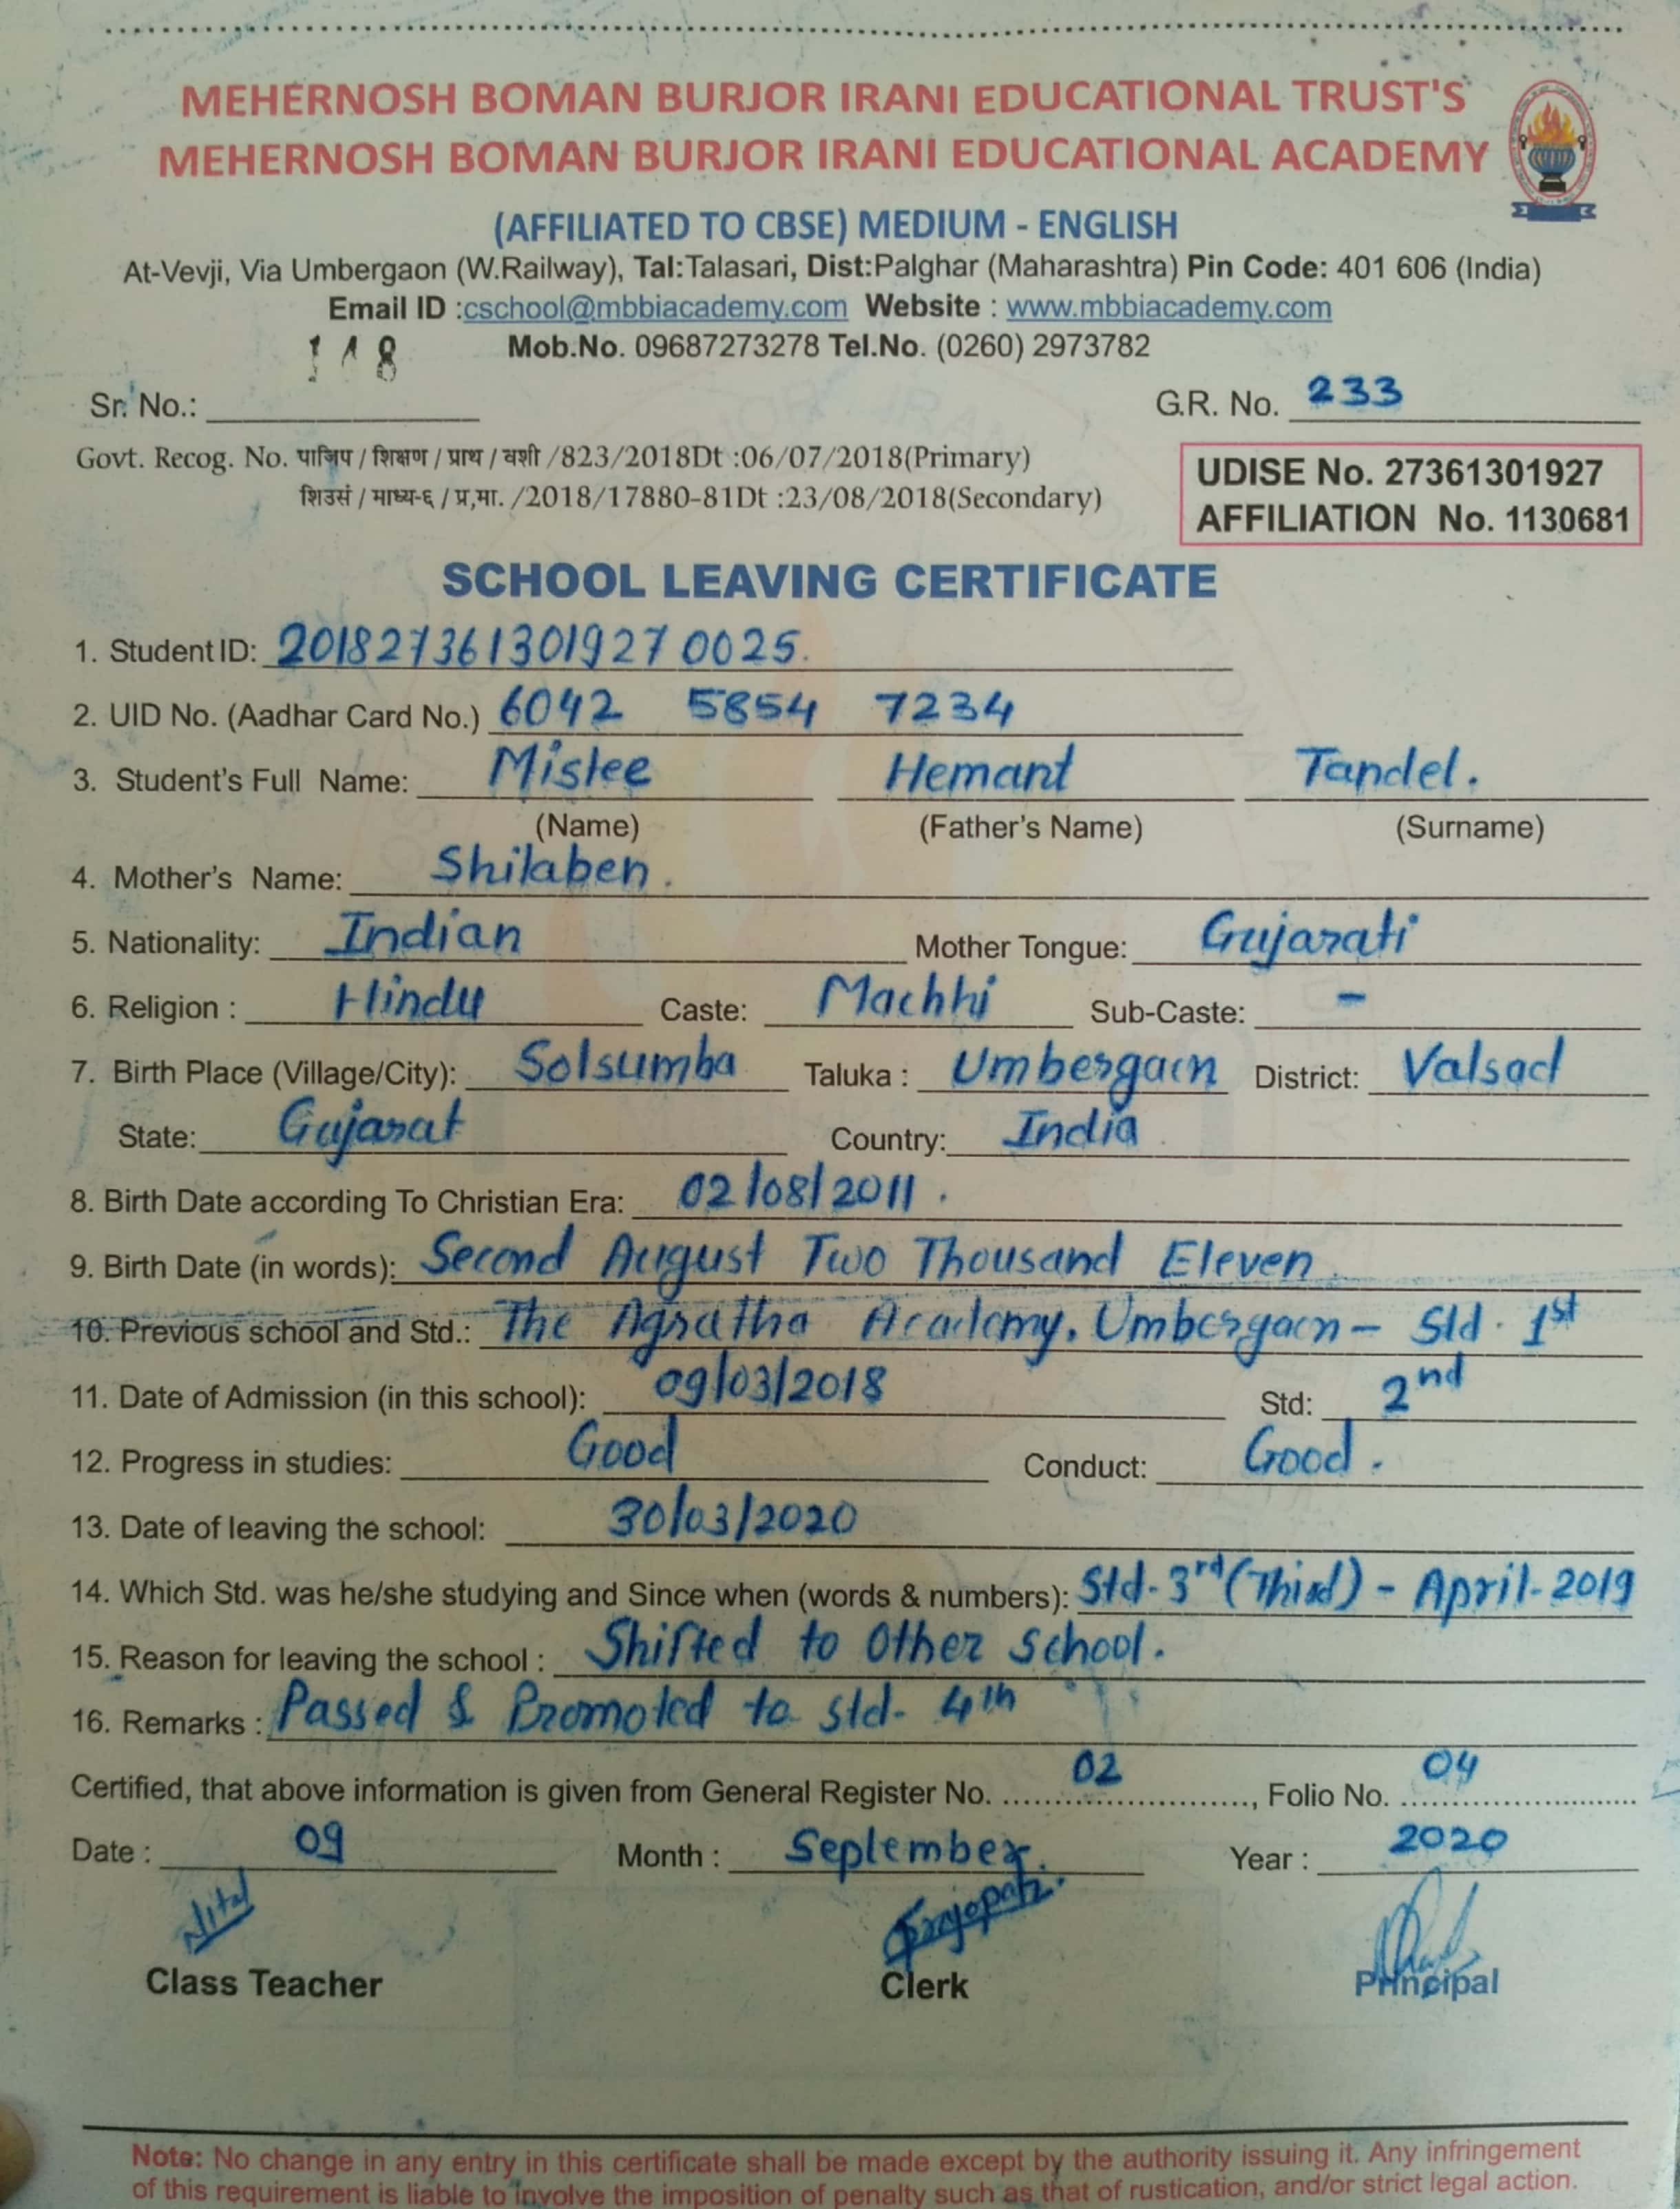 MEHERNOSH BOMAN BURJOR IRANI EDUCATIONAL TRUST'S
MEHERNOSH BOMAN BURJOR IRANI EDUCATIONAL ACADEMY
(AFFILIATED TO CBSE) MEDIUM - ENGLISH
At-Vevji, Via Umbergaon (W.Railway), Tal:Talasari, Dist:Palghar (Maharashtra) Pin Code: 401 606 (India)
Email ID :cschool@mbbiacademy.com Website : www.mbbiacademy.com
Mob.No. 09687273278 Tel.No. (0260) 2973782
Sr. No.: 118 G.R. No. 233
Govt. Recog. No. पाजिप / शिक्षण / प्राथ / वशी /823/2018Dt :06/07/2018(Primary)
शिउसं / माध्य-६ / प्र,मा. /2018/17880-81Dt :23/08/2018(Secondary)
UDISE No. 27361301927
AFFILIATION No. 1130681
SCHOOL LEAVING CERTIFICATE
1. Student ID: 2018273613019270025.
2. UID No. (Aadhar Card No.) 6042 5854 7234
3. Student's Full Name: Mistee Hemant Tandel.
(Name) (Father's Name) (Surname)
4. Mother's Name: Shilaben.
5. Nationality: Indian Mother Tongue: Gujarati
6. Religion : Hindu Caste: Machhi Sub-Caste: -
7. Birth Place (Village/City): Solsumba Taluka : Umbergaon District: Valsad
State: Gujarat Country: India
8. Birth Date according To Christian Era: 02/08/2011.
9. Birth Date (in words): Second August Two Thousand Eleven
10. Previous school and Std.: The Agratha Academy, Umbergaon - Std. 1st
11. Date of Admission (in this school): 09/03/2018 Std: 2nd
12. Progress in studies: Good Conduct: Good.
13. Date of leaving the school: 30/03/2020
14. Which Std. was he/she studying and Since when (words & numbers): Std-3rd (Third) - April-2019
15. Reason for leaving the school : Shifted to Other School.
16. Remarks : Passed & Promoted to std- 4th
Certified, that above information is given from General Register No. 02, Folio No. 04
Date : 09 Month : September. Year : 2020
Class Teacher Clerk Principal
Note: No change in any entry in this certificate shall be made except by the authority issuing it. Any infringement
of this requirement is liable to involve the imposition of penalty such as that of rustication, and/or strict legal action.